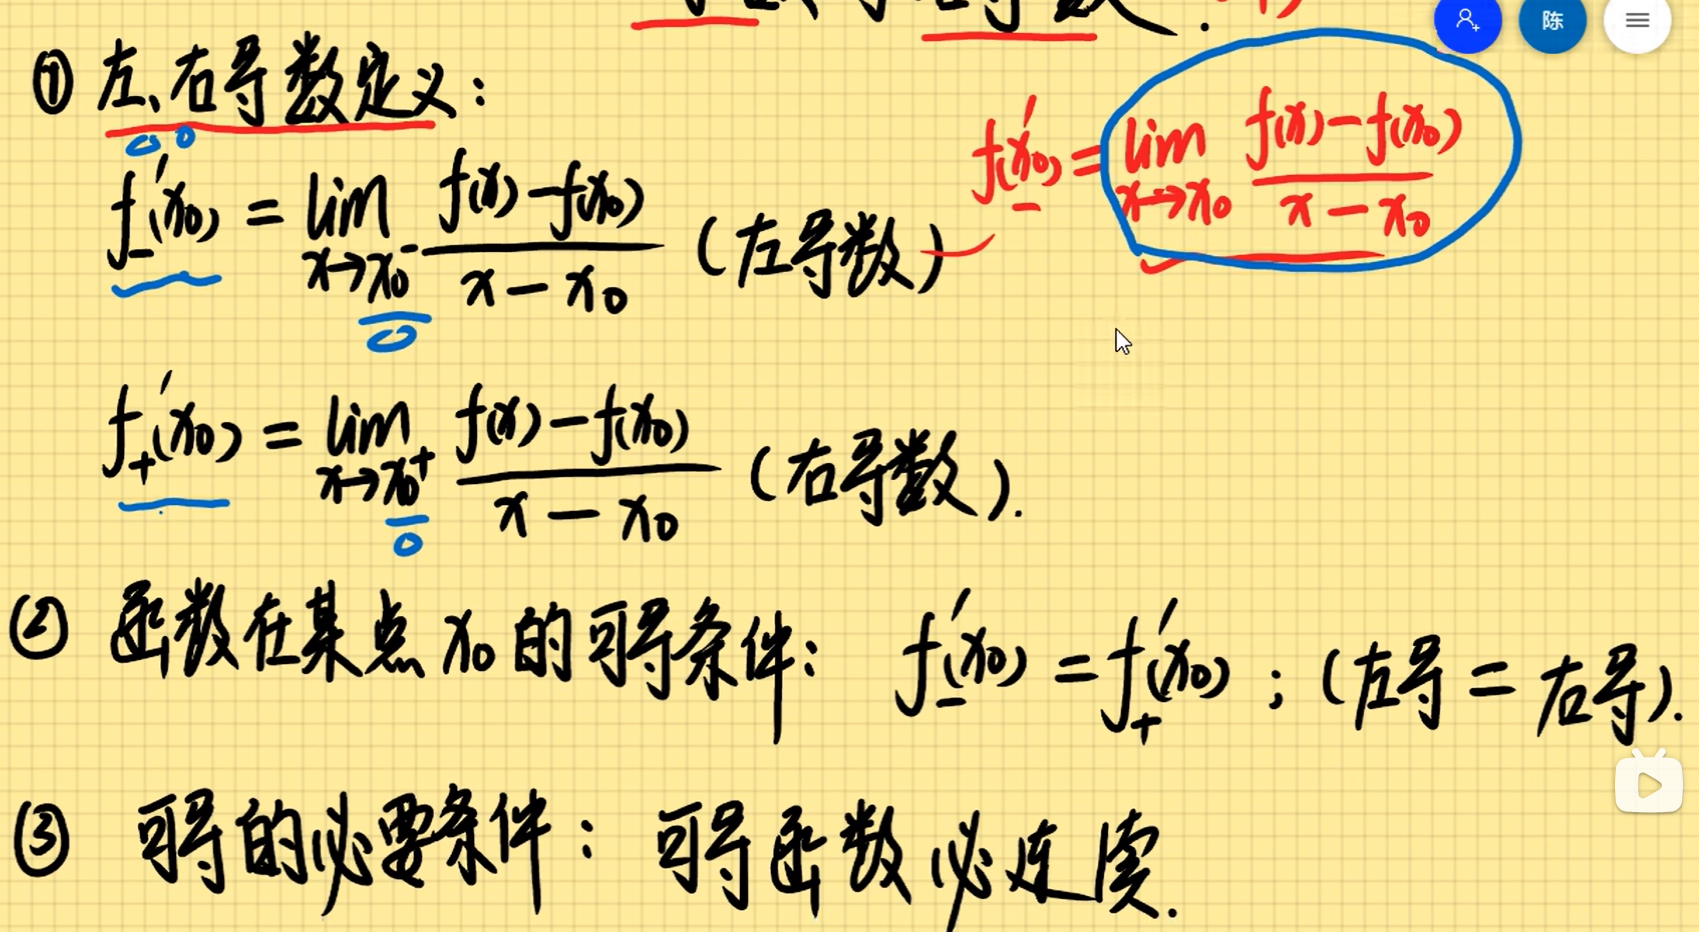 陈
① 左、右导数定义：
f'₋(x₀) = lim x→x₀⁻ (f(x)-f(x₀))/(x-x₀) （左导数）
f'₋(x₀) = lim x→x₀ (f(x)-f(x₀))/(x-x₀)
f'₊(x₀) = lim x→x₀⁺ (f(x)-f(x₀))/(x-x₀) （右导数）.
② 函数在某点 x₀ 的可导条件： f'₋(x₀) = f'₊(x₀) ; (左导 = 右导).
③ 可导的必要条件： 可导函数必连续.